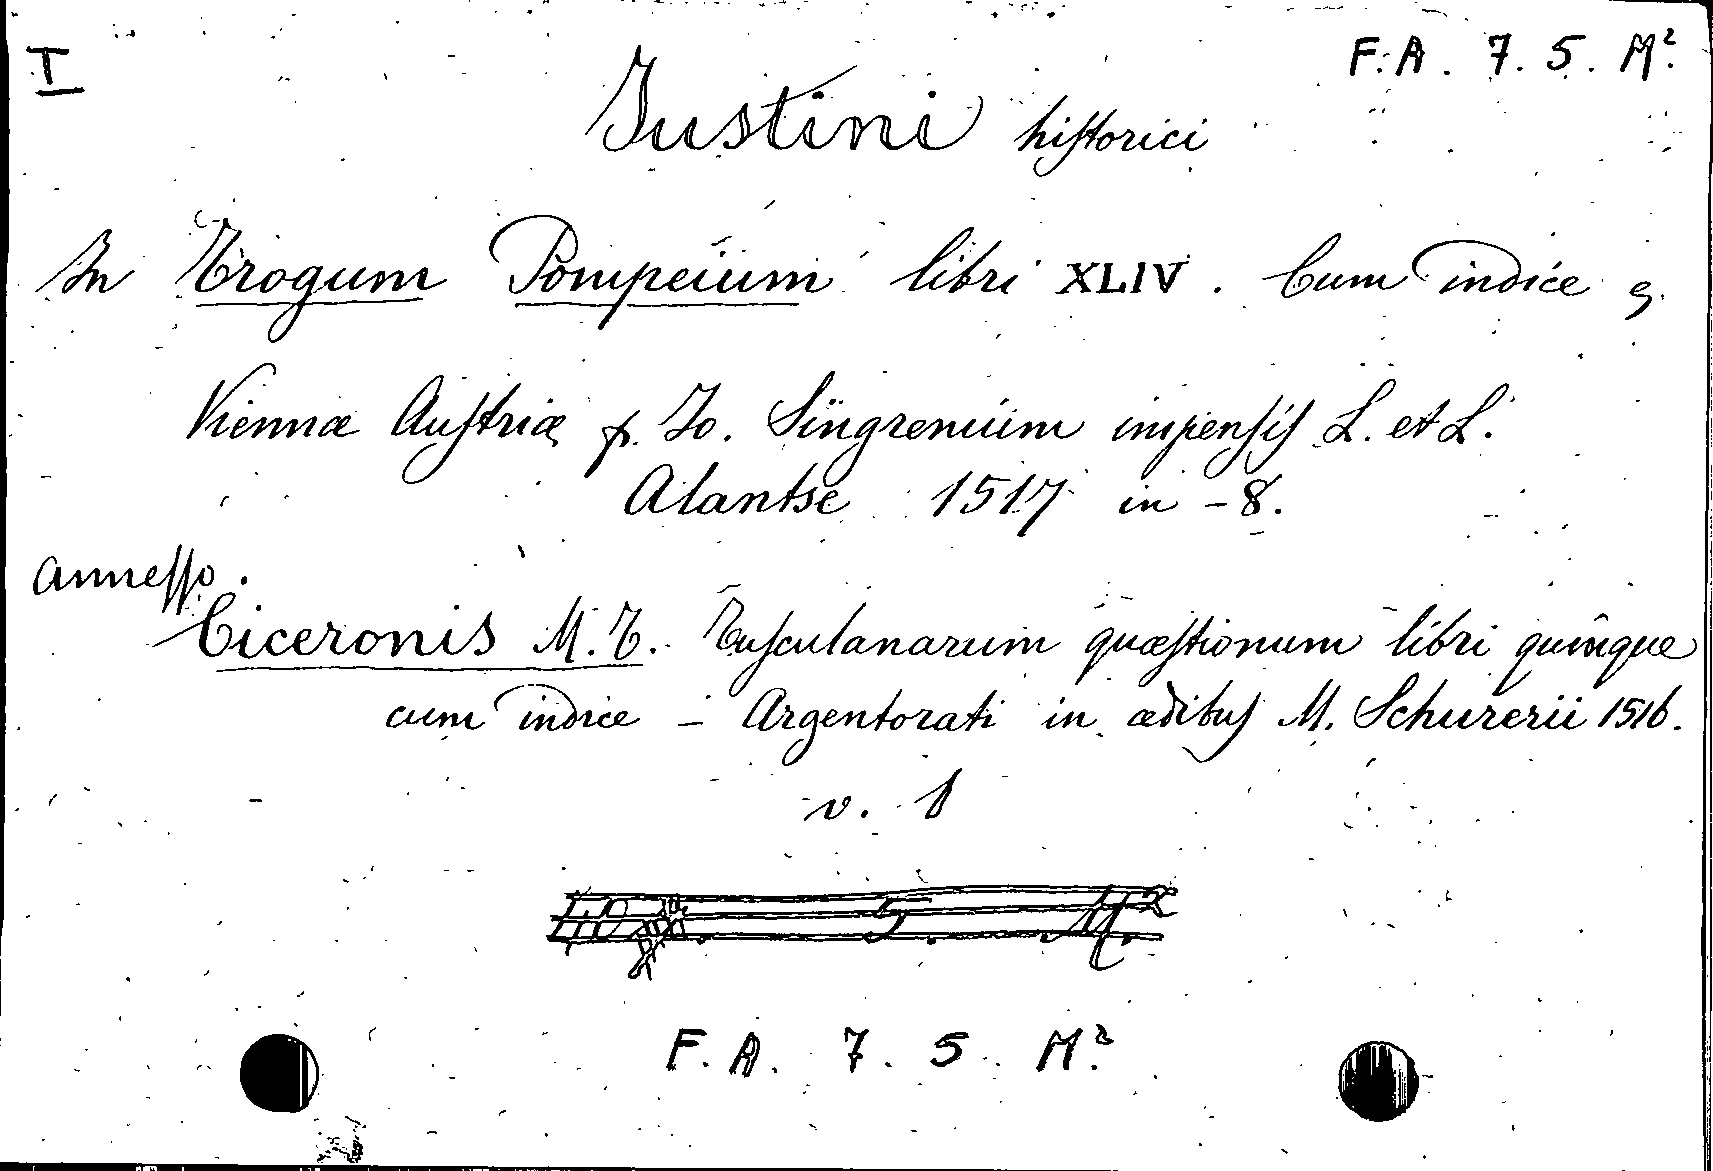 I
F. A. 7. 5. M².
Justini historici
In Trogum Pompeium libri XLIV. Cum indice
Viennæ Austriæ p. Jo. Singrenium impensis L. et L.
Alantse 1517 in -8.
annesso.
Ciceronis M. T. Tusculanarum quæstionum libri quinque
cum indice - Argentorati in ædibus M. Schurerii 1516.
v. 1
5. M²
F. A. 7. 5. M²